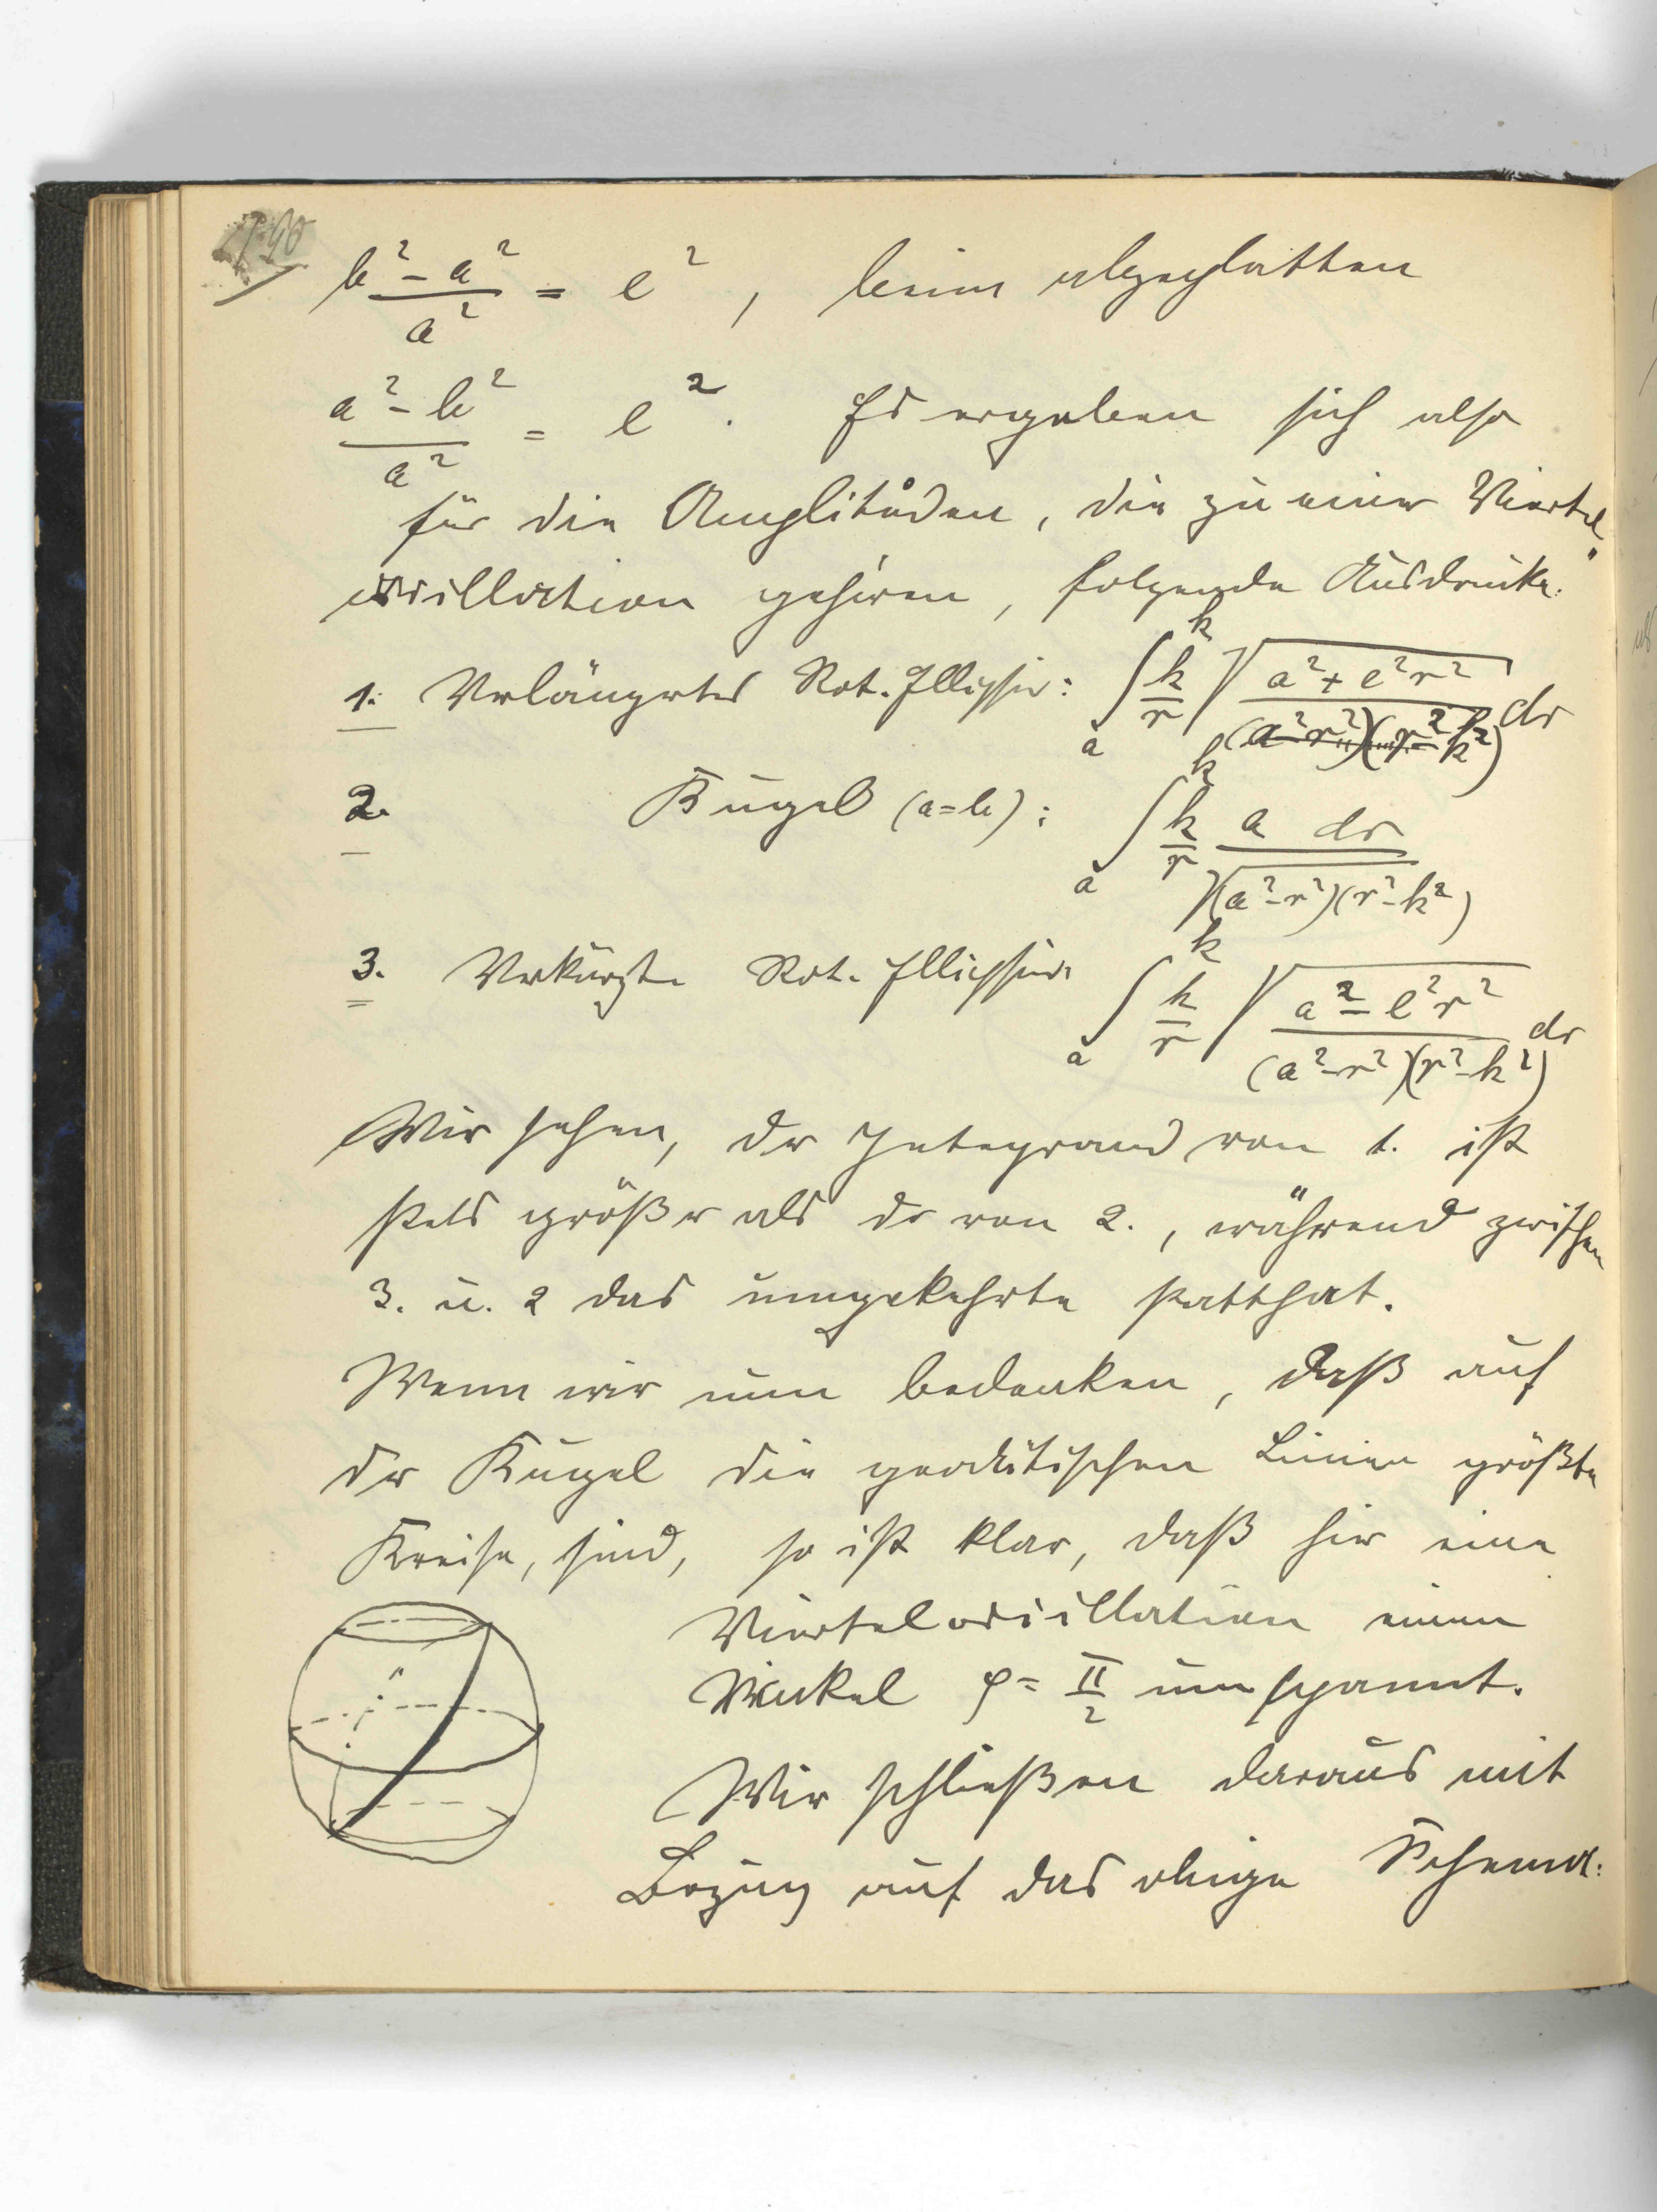 b² - a² / a² = e², beim abgeplatteten
a² - b² / a² = e². Es ergeben sich also
für die Amplituden, die zu einer Viertel
oscillation gehören, folgende Ausdrücke:
1. Verlängertes Rot. Ellipsoid: ∫ₐᵏ k/r √(a² + e²r² / (a²-r²)(r²-k²)) dr
2. Kugel (a=b): ∫ₐᵏ k/r a dr / √(a²-r²)(r²-k²)
3. Verkürzte Rot. Ellipsoid: ∫ₐᵏ k/r √(a² - e²r² / (a²-r²)(r²-k²)) dr
Wir sehen, der Integrand von 1. ist
stets größer als der von 2., während zwischen
3. u. 2 das umgekehrte statthat.
Wenn wir nun bedenken, daß auf
der Kugel die geodätischen Linien größte
Kreise, sind, so ist klar, daß hier eine
Vierteloscillation einen
Winkel φ = π/2 umspannt.
Wir schließen daraus mit
Bezug auf das obige Schema: